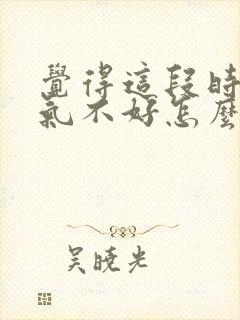 覺得這段時
氣不好怎麼
吳曉光